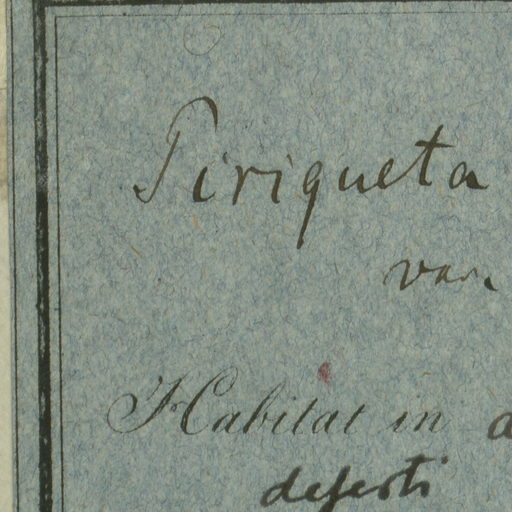 Piriqueta
var.
Habitat in
deserti